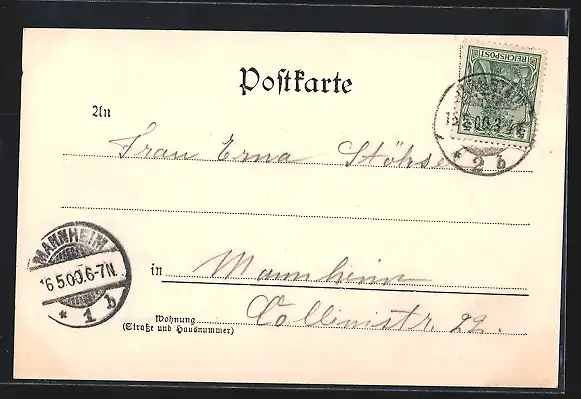 Postkarte
REICHSPOST
An
Frau Erna Stöhse
2 b
MANNHEIM
16 5.00.6-7N.
* 1 b
in Mannheim
Wohnung
(Straße und Hausnummer)
Collinistr. 22.